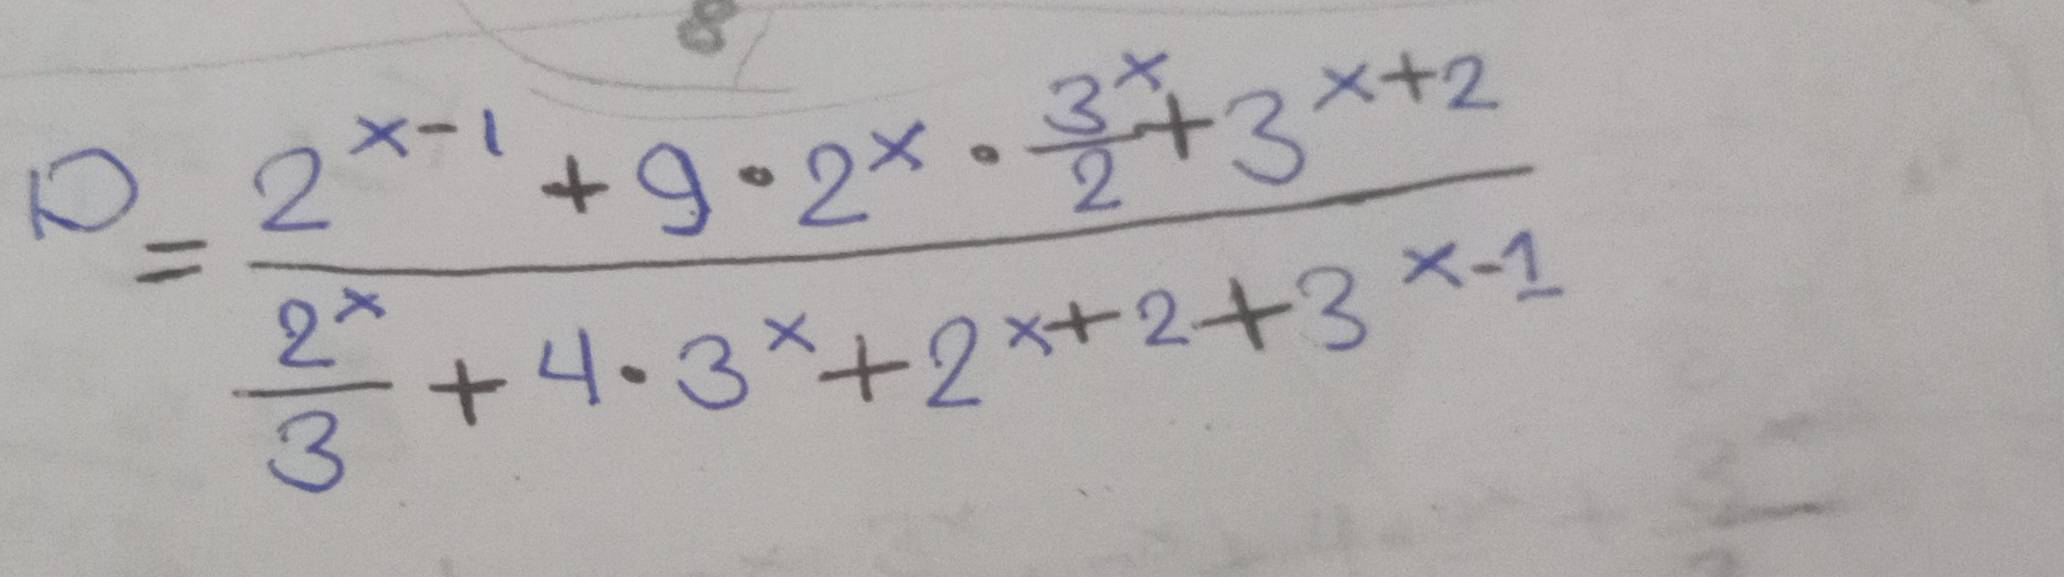 8
D = \frac{2^{x-1} + 9 \cdot 2^x \cdot \frac{3^x}{2} + 3^{x+2}}{\frac{2^x}{3} + 4 \cdot 3^x + 2^{x+2} + 3^{x-1}}